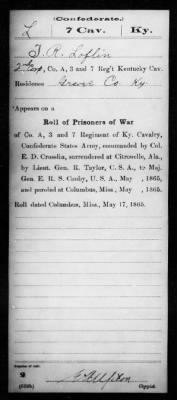 (Confederate.)
L 7 Cav. Ky.
T. R. Loflin
2" Corp, Co. A, 3 and 7 Reg't Kentucky Cav.
Residence Graves Co Ky.
Appears on a
Roll of Prisoners of War
of Co. A, 3 and 7 Regiment of Ky. Cavalry,
Confederate States Army, commanded by Col.
E. D. Crosslin, surrendered at Citronelle, Ala.,
by Lieut. Gen. R. Taylor, C. S. A., to Maj.
Gen. E. R. S. Canby, U. S. A., May , 1865,
and paroled at Columbus, Miss., May , 1865.
Roll dated Columbus, Miss., May 17, 1865.
Number of roll:
2
Copyist.